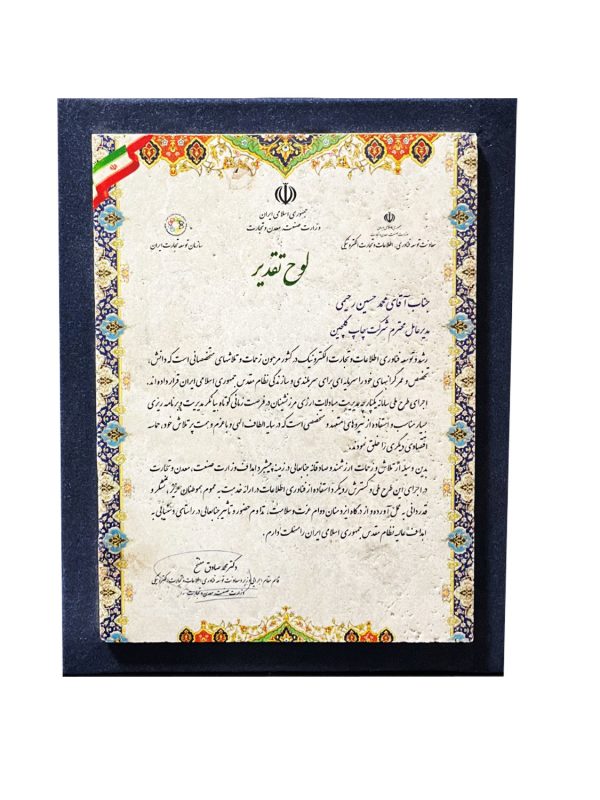 جمهوری اسلامی ایران
وزارت صنعت، معدن و تجارت
جمهوری اسلامی ایران
وزارت صنعت، معدن و تجارت
معاونت توسعه فناوری، اطلاعات و تجارت الکترونیکی
سازمان توسعه تجارت ایران
لوح تقدیر
جناب آقای محمد حسین رحیمی
مدیرعامل محترم شرکت چاپ گلچین
رشد و توسعه فناوری اطلاعات و تجارت الکترونیک در کشور مرهون زحمات و تلاشهای متخصصانی است که دانش،
تخصص و عمر گرانبهای خود را سرمایه ای برای سربلندی و سازندگی نظام مقدس جمهوری اسلامی ایران قرار داده اند.
اجرای طرح ملی سامانه یکپارچه مدیریت مبادلات ارزی مرزنشینان در فرصت زمانی کوتاه بیانگر مدیریت و برنامه ریزی
بسیار مناسب و استفاده از نیروهای متعهد و متخصصی است که در سایه الطاف الهی و با عزم و همت پر تلاش خود، حماسه
اقتصادی دیگری را خلق نمودند.
بدین وسیله از تلاش و زحمات ارزشمند و صادقانه جنابعالی در زمینه پیشبرد اهداف وزارت صنعت، معدن و تجارت
در اجرای این طرح ملی و گسترش رویکرد استفاده از فناوری اطلاعات در ارائه خدمت به عموم هموطنان عزیز، تشکر و
قدردانی به عمل آورده و از درگاه ایزد منان دوام عزت و سلامت، تداوم حضور و تاثیر جنابعالی در راستای دستیابی به
اهداف عالیه نظام مقدس جمهوری اسلامی ایران را مسئلت دارم.
دکتر محمد صادق مفتح
قائم مقام وزیر و معاونت توسعه فناوری اطلاعات و تجارت الکترونیکی
وزارت صنعت معدن و تجارت